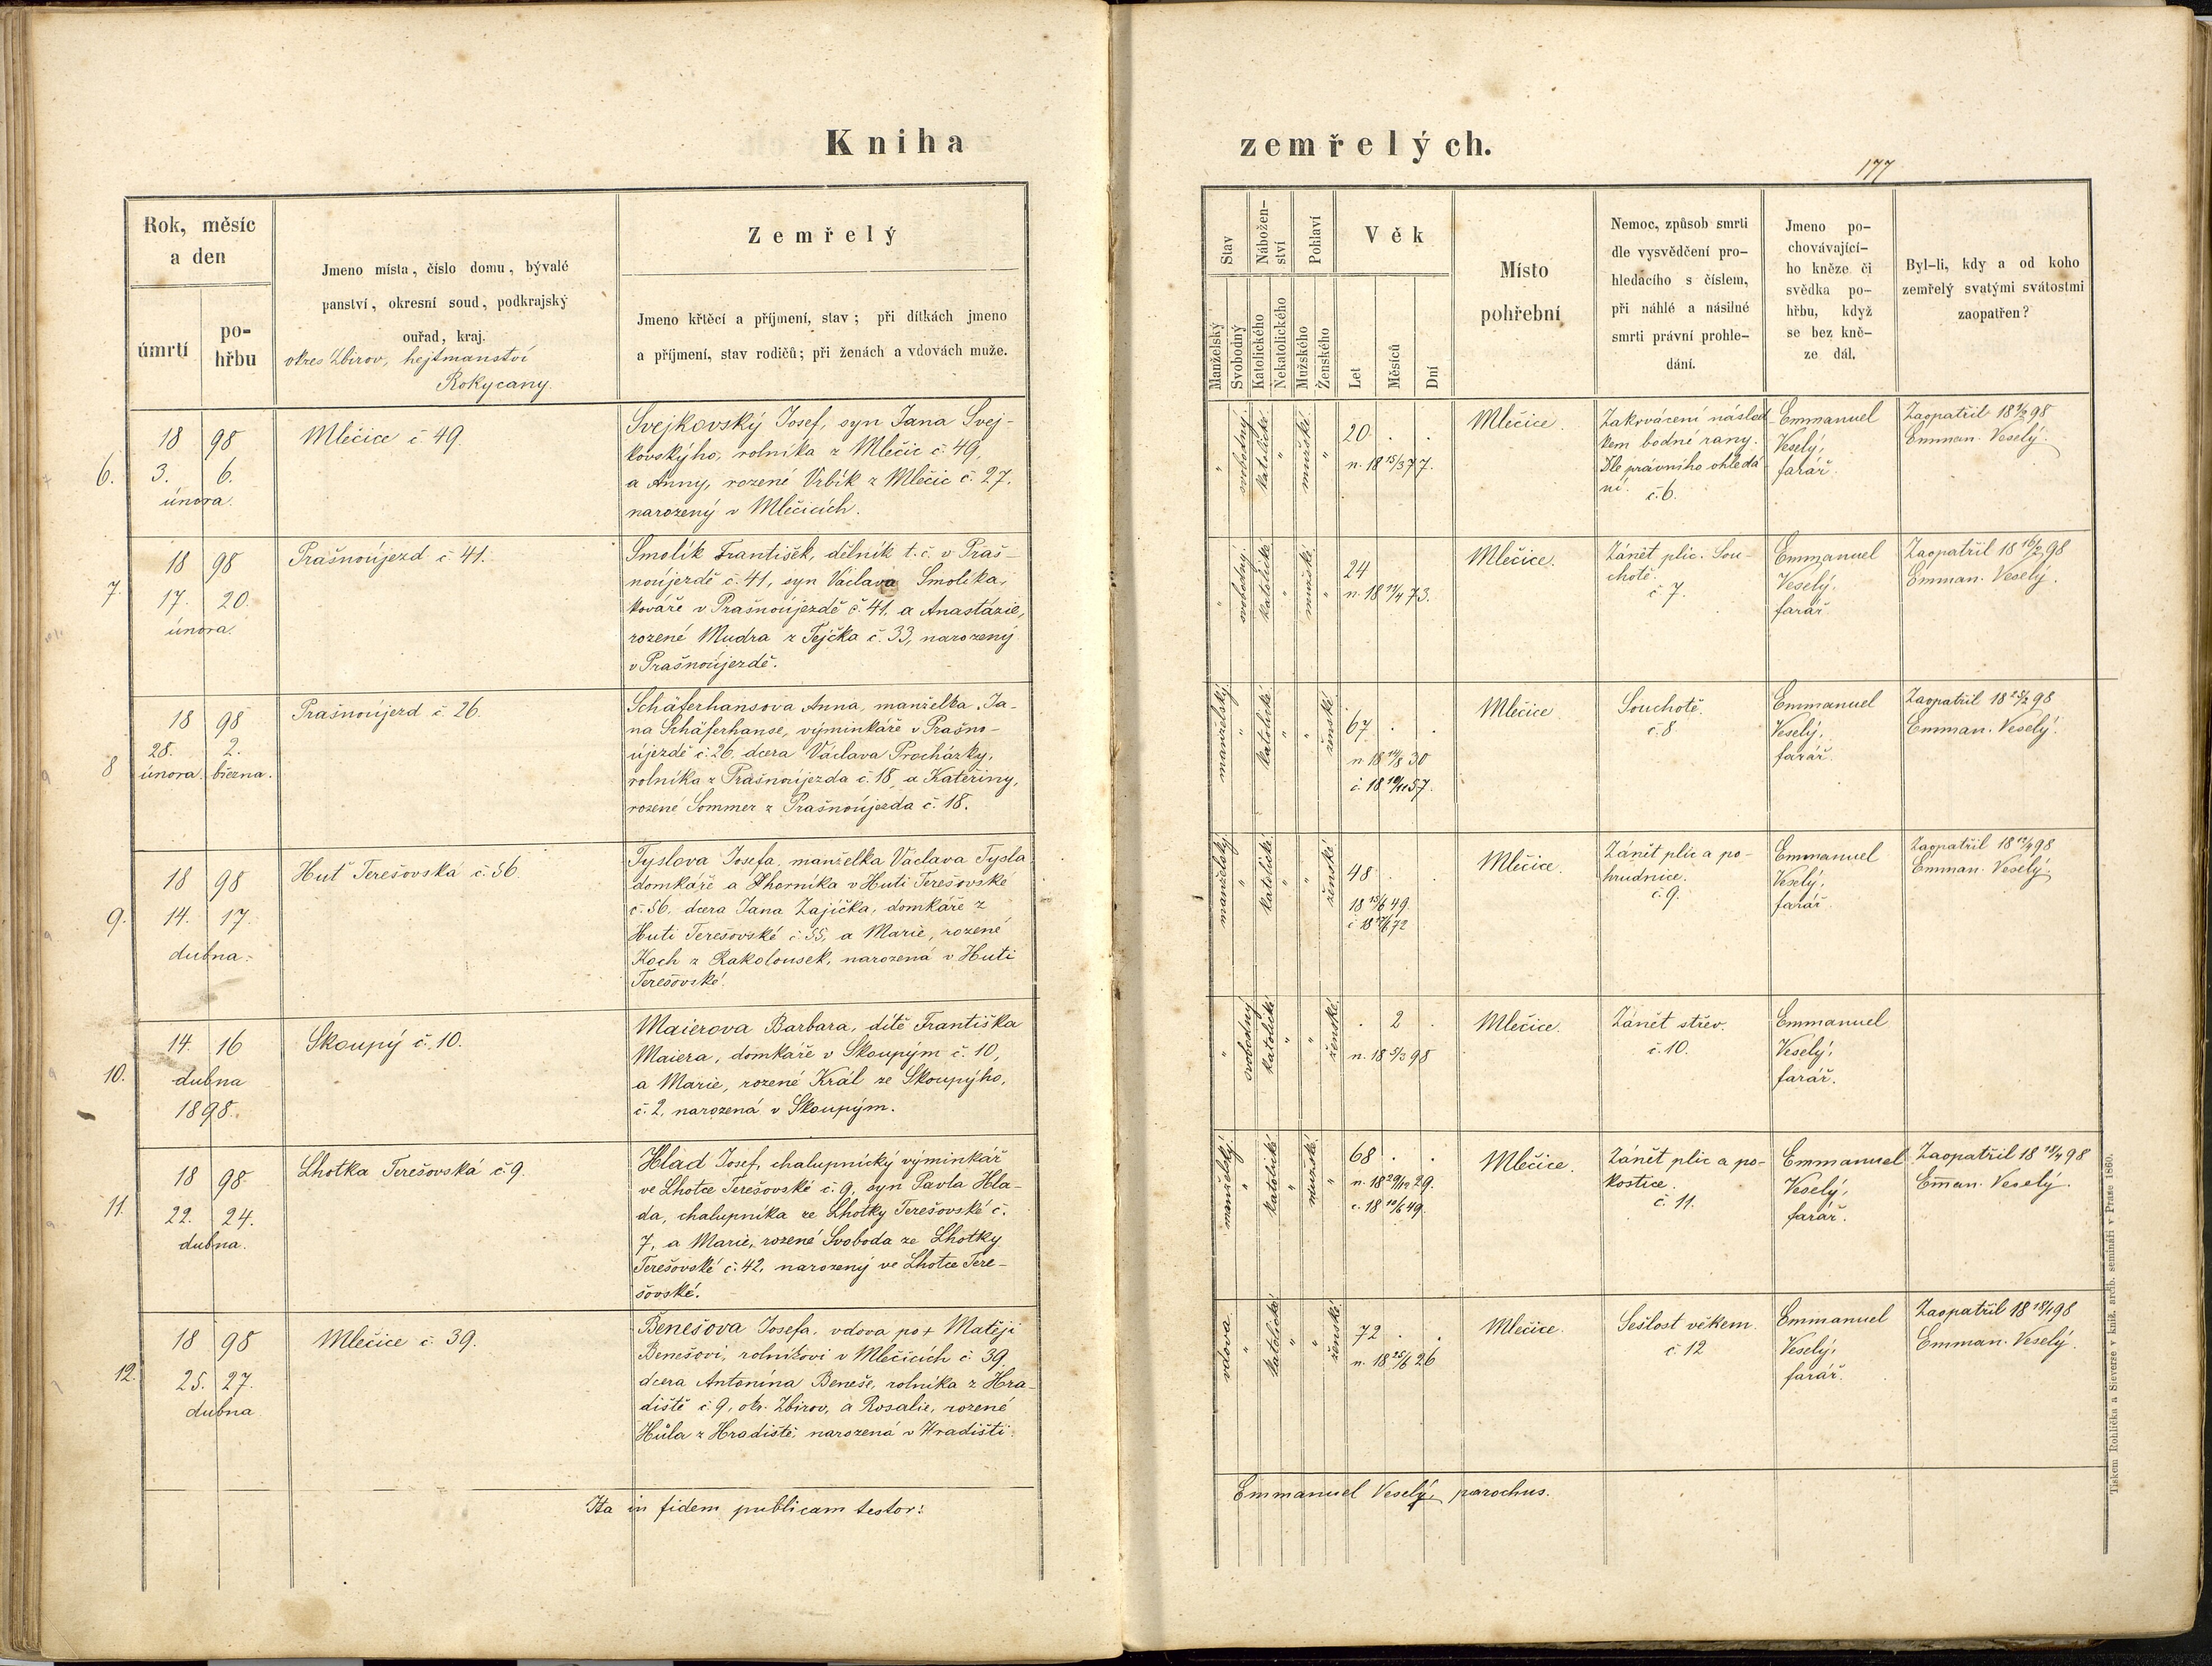 Kniha
zemřelých.
177
Rok, měsíc
a den
úmrtí
po-
hřbu
Jmeno místa, číslo domu, bývalé
panství, okresní soud, podkrajský
ouřad, kraj.
okres Zbirov, hejtmanství
Rokycany.
Zemřelý
Jmeno křtěcí a příjmení, stav; při dítkách jmeno
a příjmení, stav rodičů; při ženách a vdovách muže.
Stav
Manželský
Svobodný
Nábožen-
ství
Katolického
Nekatolického
Pohlaví
Mužského
Ženského
Věk
Let
Měsíců
Dní
Místo
pohřební
Nemoc, způsob smrti
dle vysvědčení pro-
hledacího s číslem,
při náhlé a násilné
smrti právní prohle-
dání.
Jmeno po-
chovávající-
ho kněze či
svědka po-
hřbu, když
se bez kně-
ze dál.
Byl-li, kdy a od koho
zemřelý svatými svátostmi
zaopatřen?
6.
18 98
3. 6.
února.
Mlečice č. 49.
Svejkovský Josef, syn Jana Svej-
kovskýho, rolníka z Mlečic č. 49,
a Anny, rozené Vrbík z Mlečic č. 27.
narozený v Mlečicích.
" svobodný katolické " mužské "
20 . .
n. 18 15/3 77.
Mlečice.
Zakrvácení násled-
kem bodné rany.
Dle právního ohledá
ní. č. 6.
Emmanuel
Veselý,
farář.
Zaopatřil 18 98
Emman. Veselý.
7.
18 98
17. 20.
února.
Prašnoújezd č. 41.
Smolík František, dělník t. č. v Praš-
noújezdě č. 41, syn Václava Smolíka,
kováře v Prašnoújezdě č. 41. a Anastázie,
rozené Mudra z Tejčka č. 33, narozený
v Prašnoújezdě.
" svobodný katolické " mužské "
24
n. 18 73.
Mlečice.
Zánět plic. Sou-
chotě.
č. 7.
Emmanuel
Veselý,
farář.
Zaopatřil 18 16/2 98
Emman. Veselý.
8
18 98
28. 2.
února. března.
Prašnoújezd č. 26.
Schäferhansova Anna, manželka Ja-
na Schäferhanse, výminkáře v Prašno-
újezdě č. 26. dcera Václava Procházky,
rolníka z Prašnoújezda č. 18, a Kateřiny,
rozené Sommer z Prašnoújezda č. 18.
manželský " katolické " " ženské
67 . .
n. 18 30
č. 18 57.
Mlečice
Souchotě.
č. 8
Emmanuel
Veselý,
farář.
Zaopatřil 18 25/2 98
Emman. Veselý.
9.
18 98
14. 17.
dubna.
Huť Terešovská č. 56.
Tyslova Josefa, manželka Václava Tysla
domkáře a horníka v Huti Terešovské
č. 56. dcera Jana Zajíčka, domkáře z
Huti Terešovské č. 55, a Marie, rozené
Koch z Rakolousek, narozená v Huti
Terešovské.
manželský " katolické " " ženské
48 . .
18 15/6 49.
č 18 72
Mlečice.
Zánět plic a po-
hrudnice.
č. 9.
Emmanuel
Veselý,
farář.
Zaopatřil 18 98
Emman. Veselý.
10.
14. 16
dubna
1898.
Skoupý č. 10.
Maierova Barbara, dítě Františka
Maiera, domkáře v Skoupým č. 10,
a Marie, rozené Král ze Skoupýho,
č. 2, narozená v Skoupým.
" svobodný katolické " " ženské
. 2 .
n. 18 5/3 98
Mlečice.
Zánět střev.
č. 10.
Emmanuel
Veselý,
farář.
11.
18 98
22. 24.
dubna.
Lhotka Terešovská č. 9.
Hlad Josef, chalupnický výminkář
ve Lhotce Terešovské č. 9, syn Pavla Hla-
da, chalupníka ze Lhotky Terešovské č.
7, a Marie, rozené Svoboda ze Lhotky
Terešovské č. 42, narozený ve Lhotce Tere-
šovské.
manželský " katolické " mužské "
68 . .
n. 18 29/12 29.
č. 18 49.
Mlečice.
Zánět plic a po-
kostice.
č. 11.
Emmanuel
Veselý,
farář.
Zaopatřil 18 98
Eman. Veselý.
12.
18 98
25. 27.
dubna
Mlečice č. 39.
Benešova Josefa, vdova po + Matěji
Benešovi, rolníkovi v Mlečicích č. 39.
dcera Antonína Beneše, rolníka z Hra-
diště č. 9, okr. Zbirov, a Rosalie, rozené
Hůla z Hradiště, narozená v Hradišti.
vdova " katolické " " ženské
72 . .
n. 18 25/6 26
Mlečice.
Sešlost věkem.
č. 12
Emmanuel
Veselý,
farář.
Zaopatřil 18 18/4 98
Emman. Veselý.
Ita in fidem publicam testor:
Emmanuel Veselý, parochus.
Tiskem Rohlíčka a Sieverse v kníž. arcib. semináři v Praze 1860.